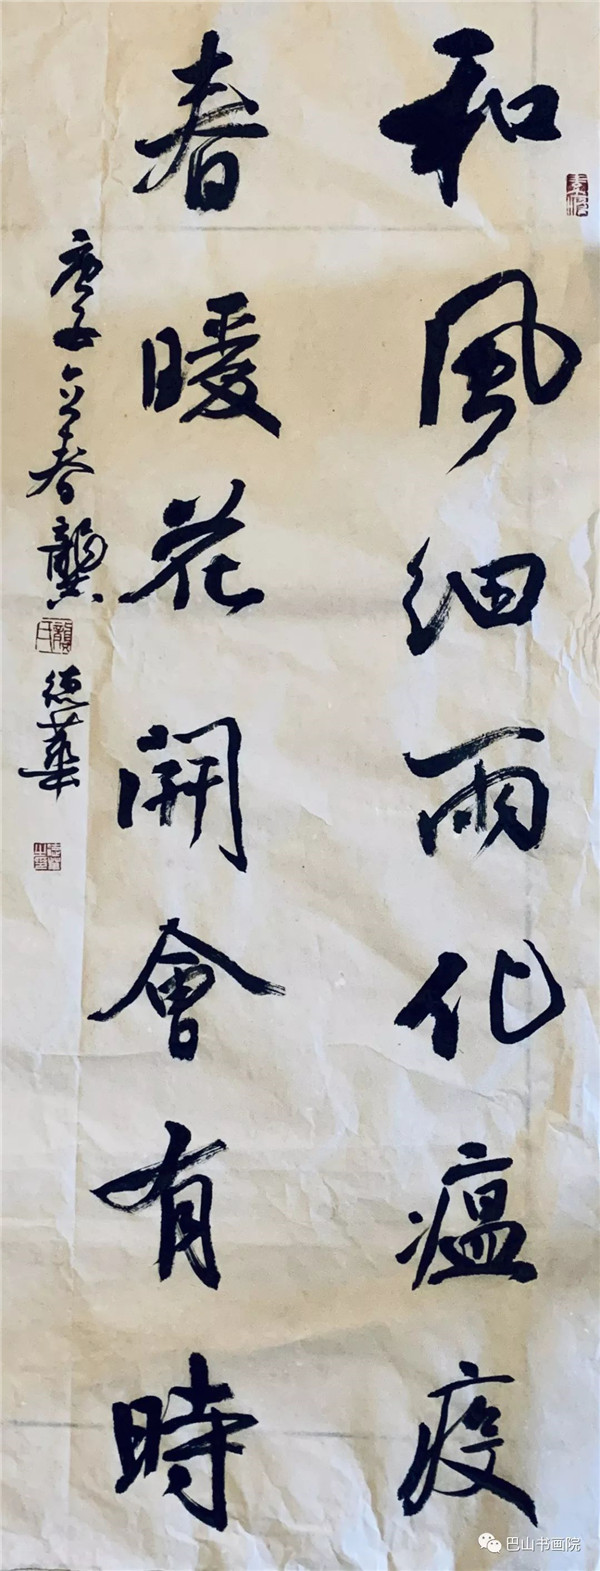 和風細雨化瘟疫
春暖花開會有時
庚子立春龔德華
巴山书画院